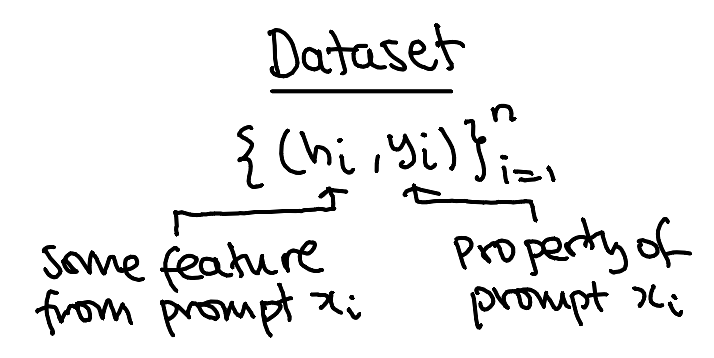 Dataset
{(hi, yi)}ⁿi=1
some feature
from prompt xi
property of
prompt xi